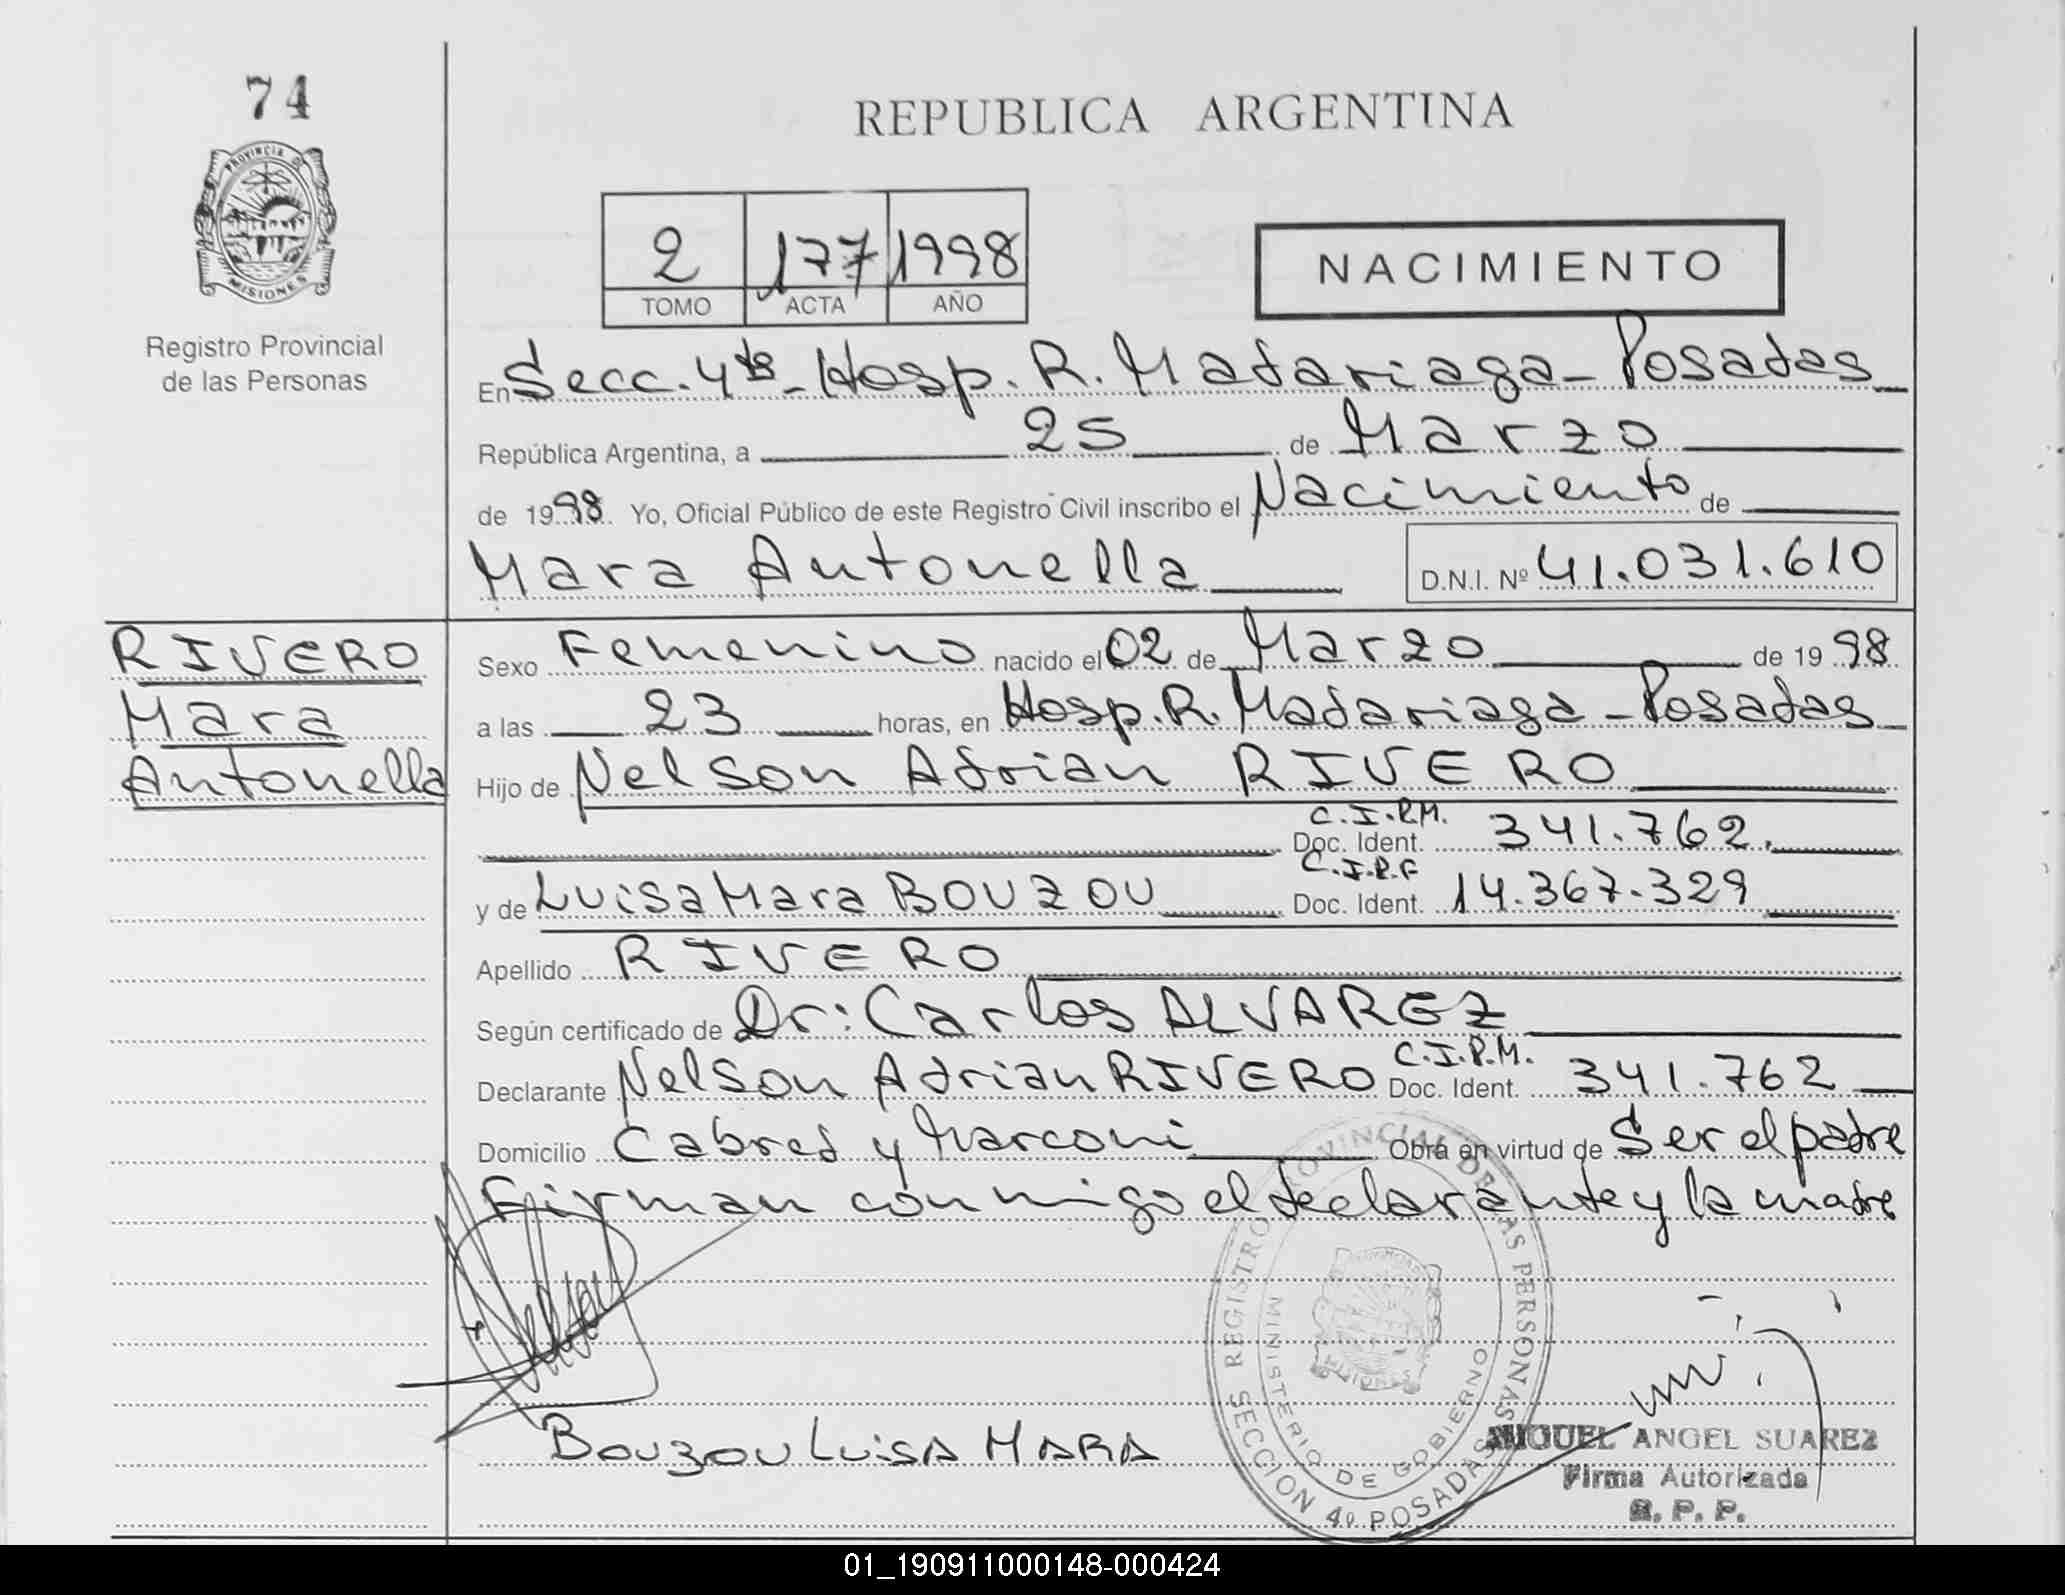 74
REPUBLICA ARGENTINA
PROVINCIA DE
MISIONES
Registro Provincial
de las Personas
2 177 1998
TOMO ACTA AÑO
NACIMIENTO
En Secc. 4ta - Hosp. R. Madariaga - Posadas
República Argentina, a 25 de Marzo
de 1998. Yo, Oficial Público de este Registro Civil inscribo el Nacimiento de
Mara Antonella D.N.I. Nº 41.031.610
RIVERO
Mara
Antonella
Sexo Femenino nacido el 02 de Marzo de 19 98
a las 23 horas, en Hosp. R. Madariaga - Posadas
Hijo de Nelson Adrian RIVERO
C.I.P.M.
Doc. Ident. 341.762.
C.I.P.F
y de Luisa Mara BOUZOU Doc. Ident. 14.367.329
Apellido RIVERO
Según certificado de Dr: Carlos ALVAREZ
C.I.P.M.
Declarante Nelson Adrian RIVERO Doc. Ident. 341.762
Domicilio Cabred y Marconi Obra en virtud de Ser el padre
Firman conmigo el declarante y la madre
REGISTRO PROVINCIAL DE LAS PERSONAS
MINISTERIO DE GOBIERNO
MISIONES
SECCION 4º POSADAS
BOUZOU LUISA MARA
MIGUEL ANGEL SUAREZ
Firma Autorizada
R. P. P.
01_190911000148-000424